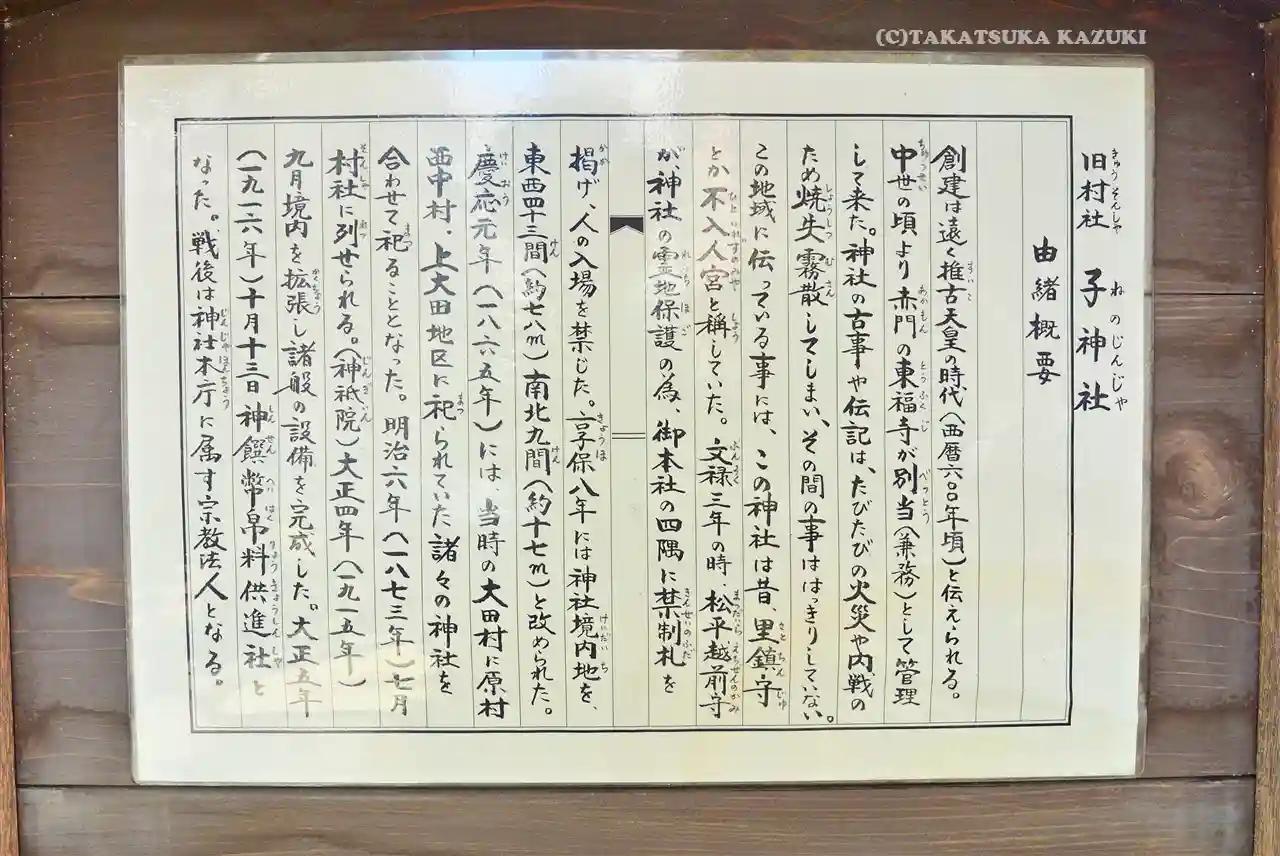 (C)TAKATSUKA KAZUKI
旧村社 子神社
由緒概要
創建は遠く推古天皇の時代（西暦六〇〇年頃）と伝えられる。
中世の頃より赤門の東福寺が別当（兼務）として管理
して来た。神社の古事や伝記は、たびたびの火災や内戦の
ため焼失霧散してしまい、その間の事ははっきりしていない。
この地域に伝っている事には、この神社は昔、里鎮守
とか不入人宮と称していた。文禄三年の時、松平越前守
が、神社の霊地保護の為、御本社の四隅に禁制札を
掲げ、人の入場を禁じた。享保八年には神社境内地を、
東西四十三間（約七八m）南北九間（約十七m）と改められた。
慶応元年（一八六五年）には、当時の大田村に原村
西中村、上大田地区に祀られていた諸々の神社を
合わせて祀ることとなった。明治六年（一八七三年）七月
村社に列せられる。（神祇院）大正四年（一九一五年）
九月境内を拡張し諸般の設備を完成した。大正五年
（一九一六年）十月十三日神饌幣帛料供進社と
なった。戦後は神社本庁に属す宗教法人となる。